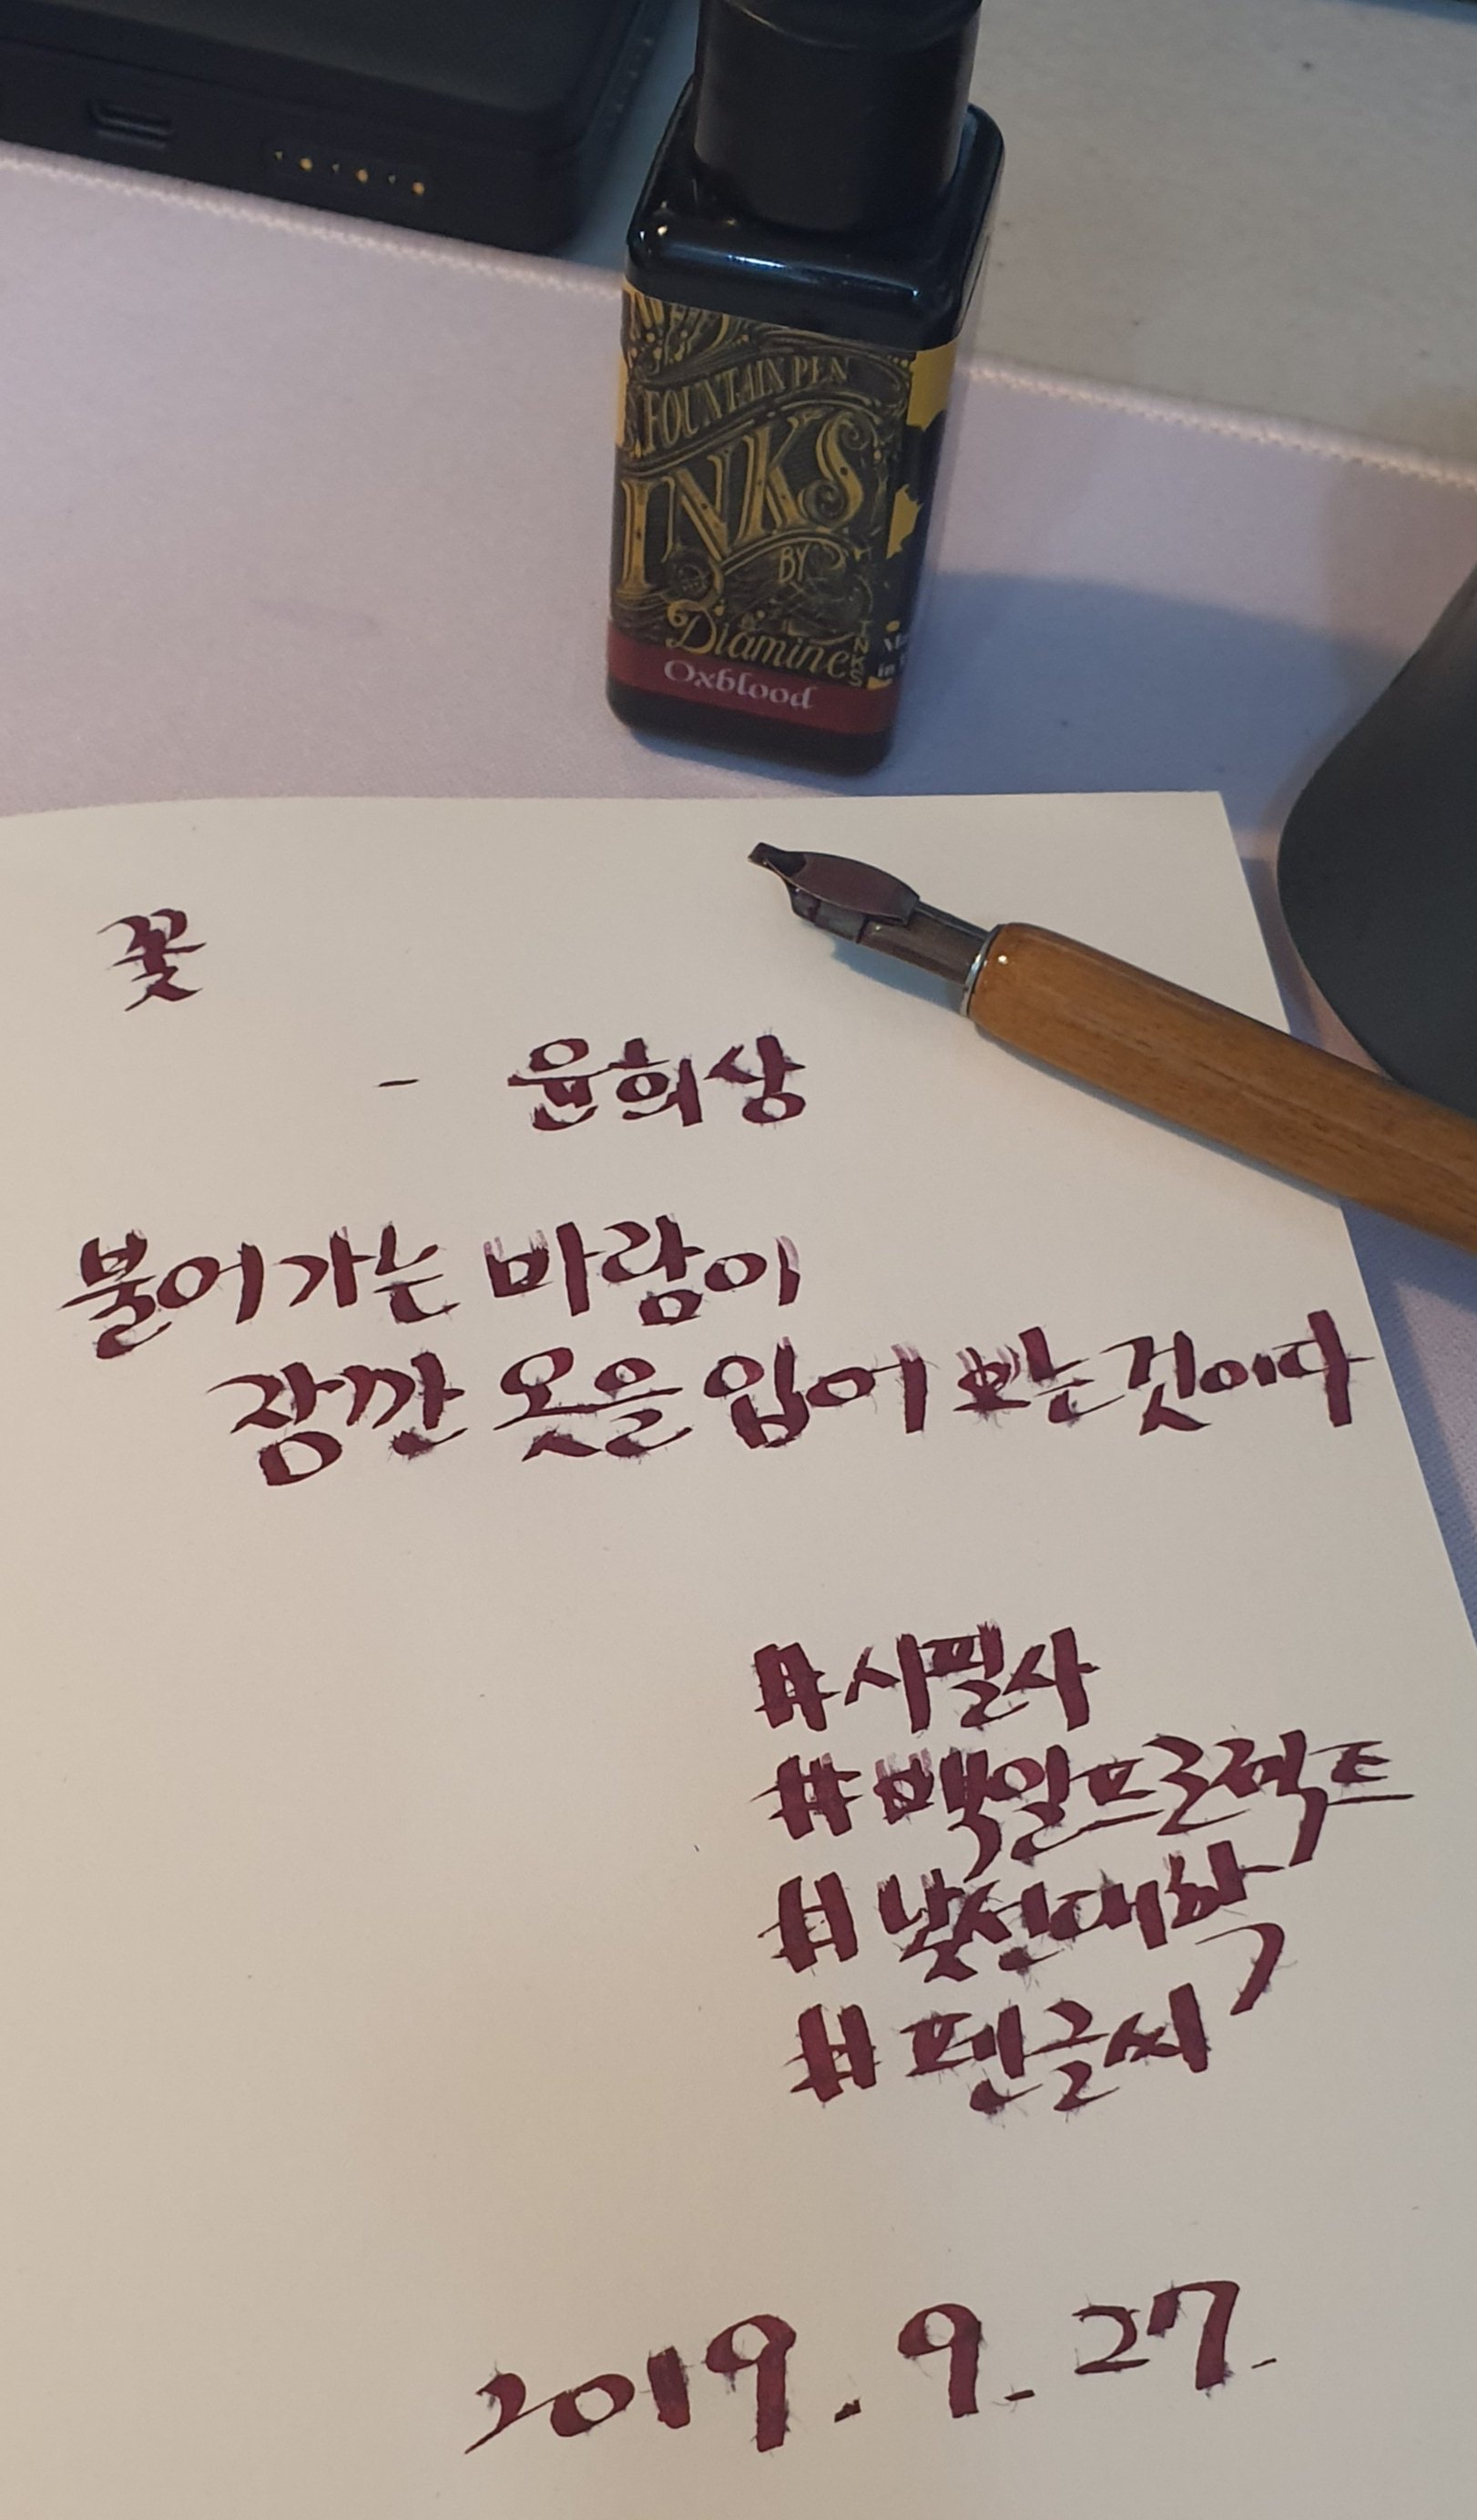 FOUNTAIN PEN
INKS
BY
Diamine
Oxblood
꽃
- 윤희상
불어가는 바람이
잠깐 옷을 입어 보는 것이다
#시필사
#백일프로젝트
#낯선대학
#펜글씨
2019. 9. 27.